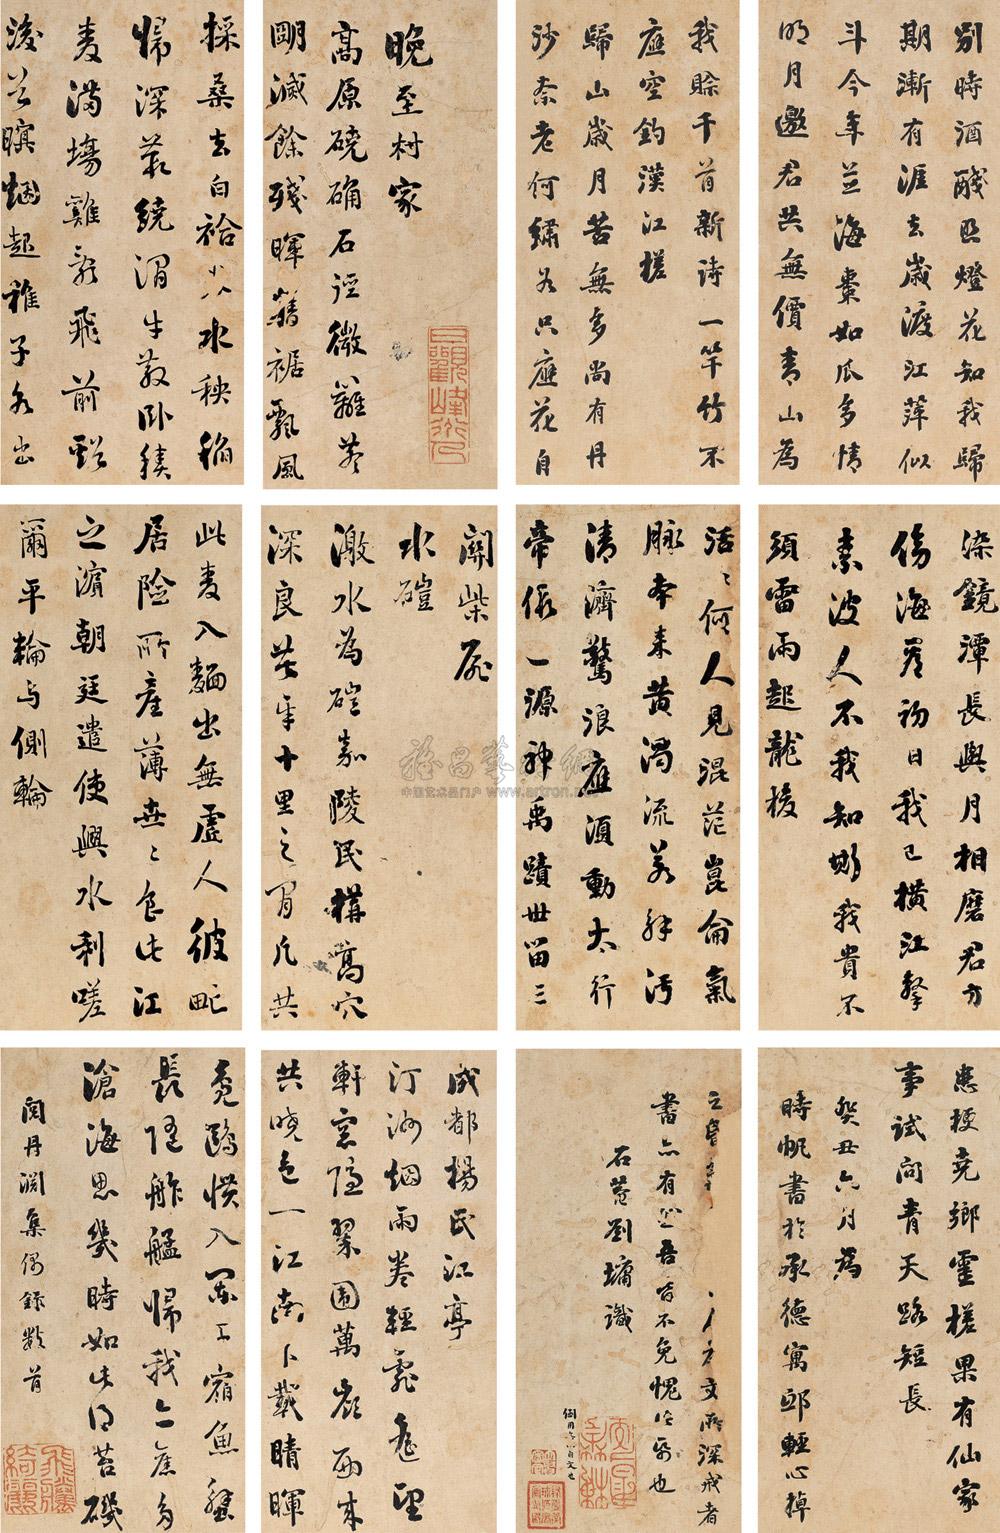 別時酒醆照燈花知我歸
期漸有涯去歲渡江萍似
斗今年並海棗如瓜多情
明月邀君共無價青山為
我賒千首新詩一竿竹不
應空釣漢江槎
歸山歲月苦無多尚有丹
砂奈老何繡
只應花自
染鏡潭長與月相磨君方
傷海
初日我已橫江擊
素波人不我知斯我貴不
須雷雨起龍梭
活〻何人見混茫崑侖氣
脉本來黄濁流若解污
清濟驚浪應須動太行
帝假一源神禹蹟世留三
患梗堯鄉靈槎果有仙家
事試問青天路短長
癸丑六月為
時帆書於承德寓邸輕心掉
之
文所深戒者
書亦有
吾
不免愧
也
石菴劉墉識
晚至村家
高原磽确石徑微籬巷
明滅餘殘暉舊裾飄風
採桑去白袷
水秧稻
歸深叢繞澗牛散臥積
麥滿場雞亂飛前谿
後谷暝烟起稚子各出
關柴扉
水磑
激水為磑嘉陵民構高穴
深良苦辛十里之間凡共
此麥入麵出無虛人彼甿
居險所產薄世〻食此江
之濱朝廷遣使興水利嗟
爾平輪與側輪
成都楊氏江亭
汀洲烟雨卷輕霏遠望
軒窓隱翠圍萬嶺西來
共曉色一江南下載晴暉
鳧鷗慣入
宿魚蟹
長隨舴艋歸我亦舊多
滄海思幾時如此得苔磯
閲丹淵集偶錄數首